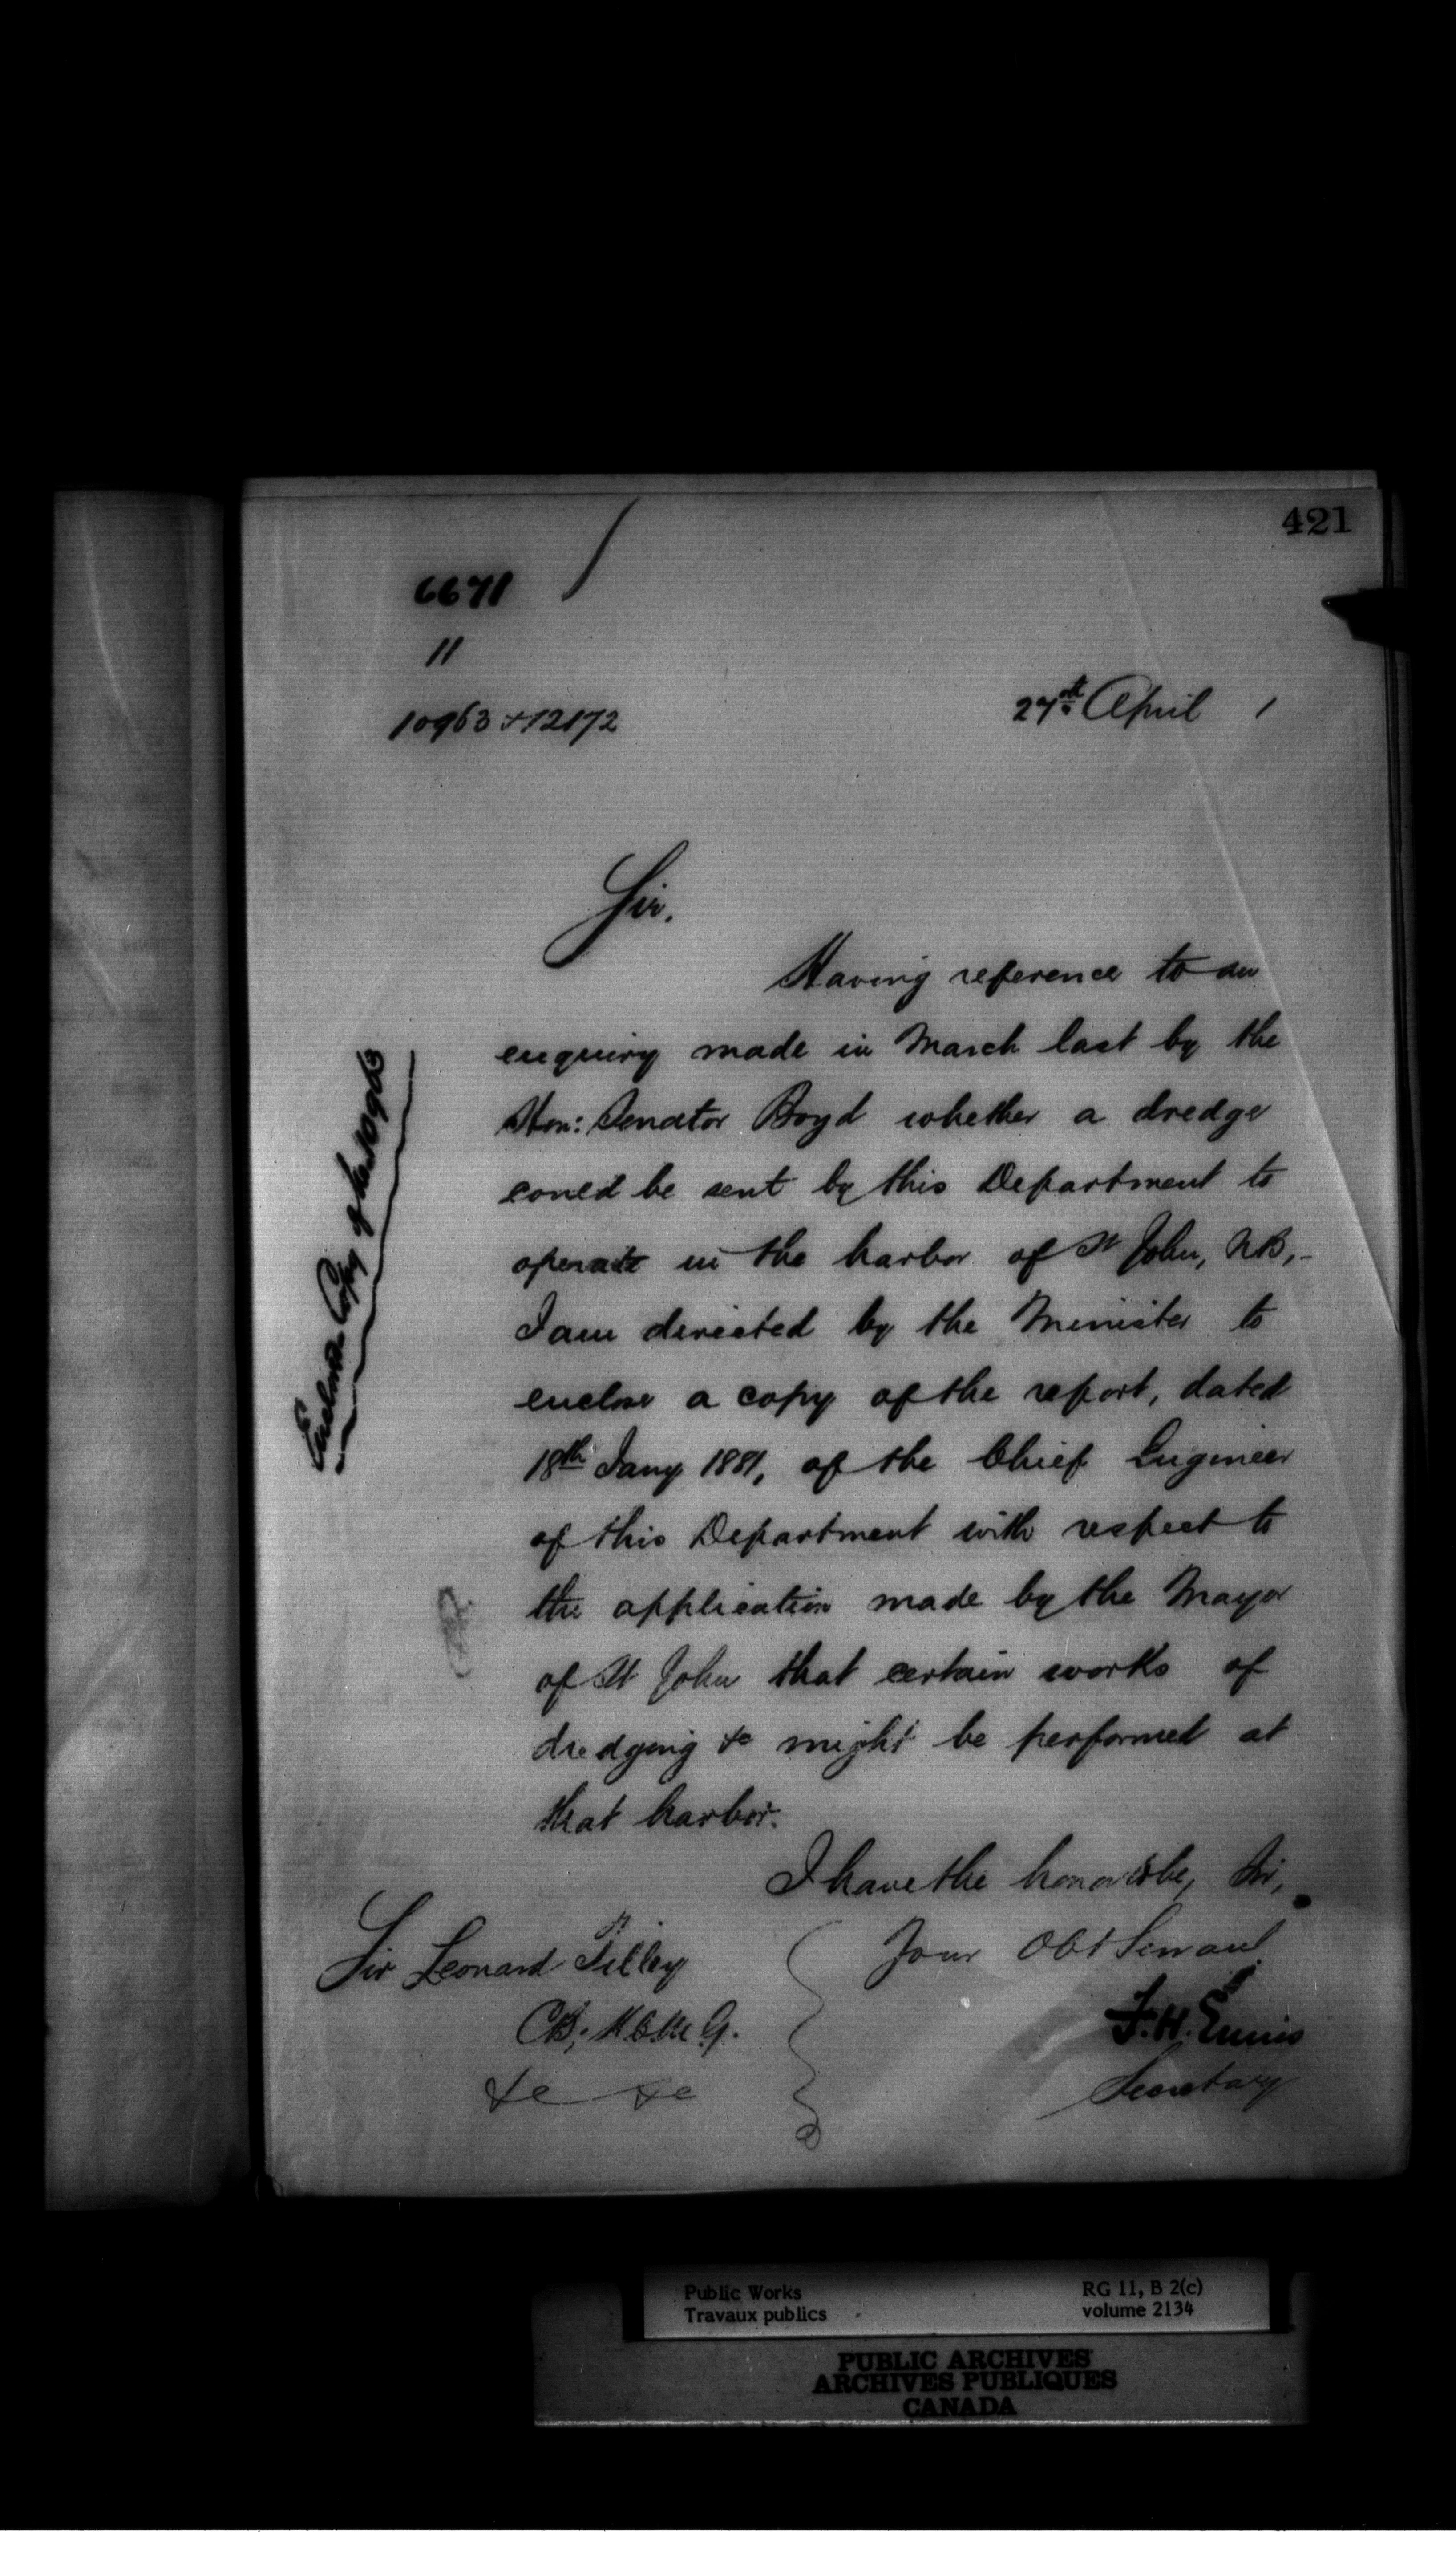 421
6671
11
10963 + 12172
27th April 1
Sir.
Having reference to an
enquiry made in March last by the
Hon: Senator Boyd whether a dredge
could be sent by this Department to
operate in the harbor of St John, N.B,-
I am directed by the Minister to
enclose a copy of the report, dated
18th Jany 1881, of the Chief Engineer
of this Department with respect to
the application made by the Mayor
of St John that certain works of
dredging &c might be performed at
that harbor.
I have the honor to be, Sir,
Your Obt Servant
F. H. Ennis
Secretary
Sir Leonard Tilley
CB; KCMG.
&c &c
Enclose Copy of No 10963
Public Works
Travaux publics
RG 11, B 2(c)
volume 2134
PUBLIC ARCHIVES
ARCHIVES PUBLIQUES
CANADA